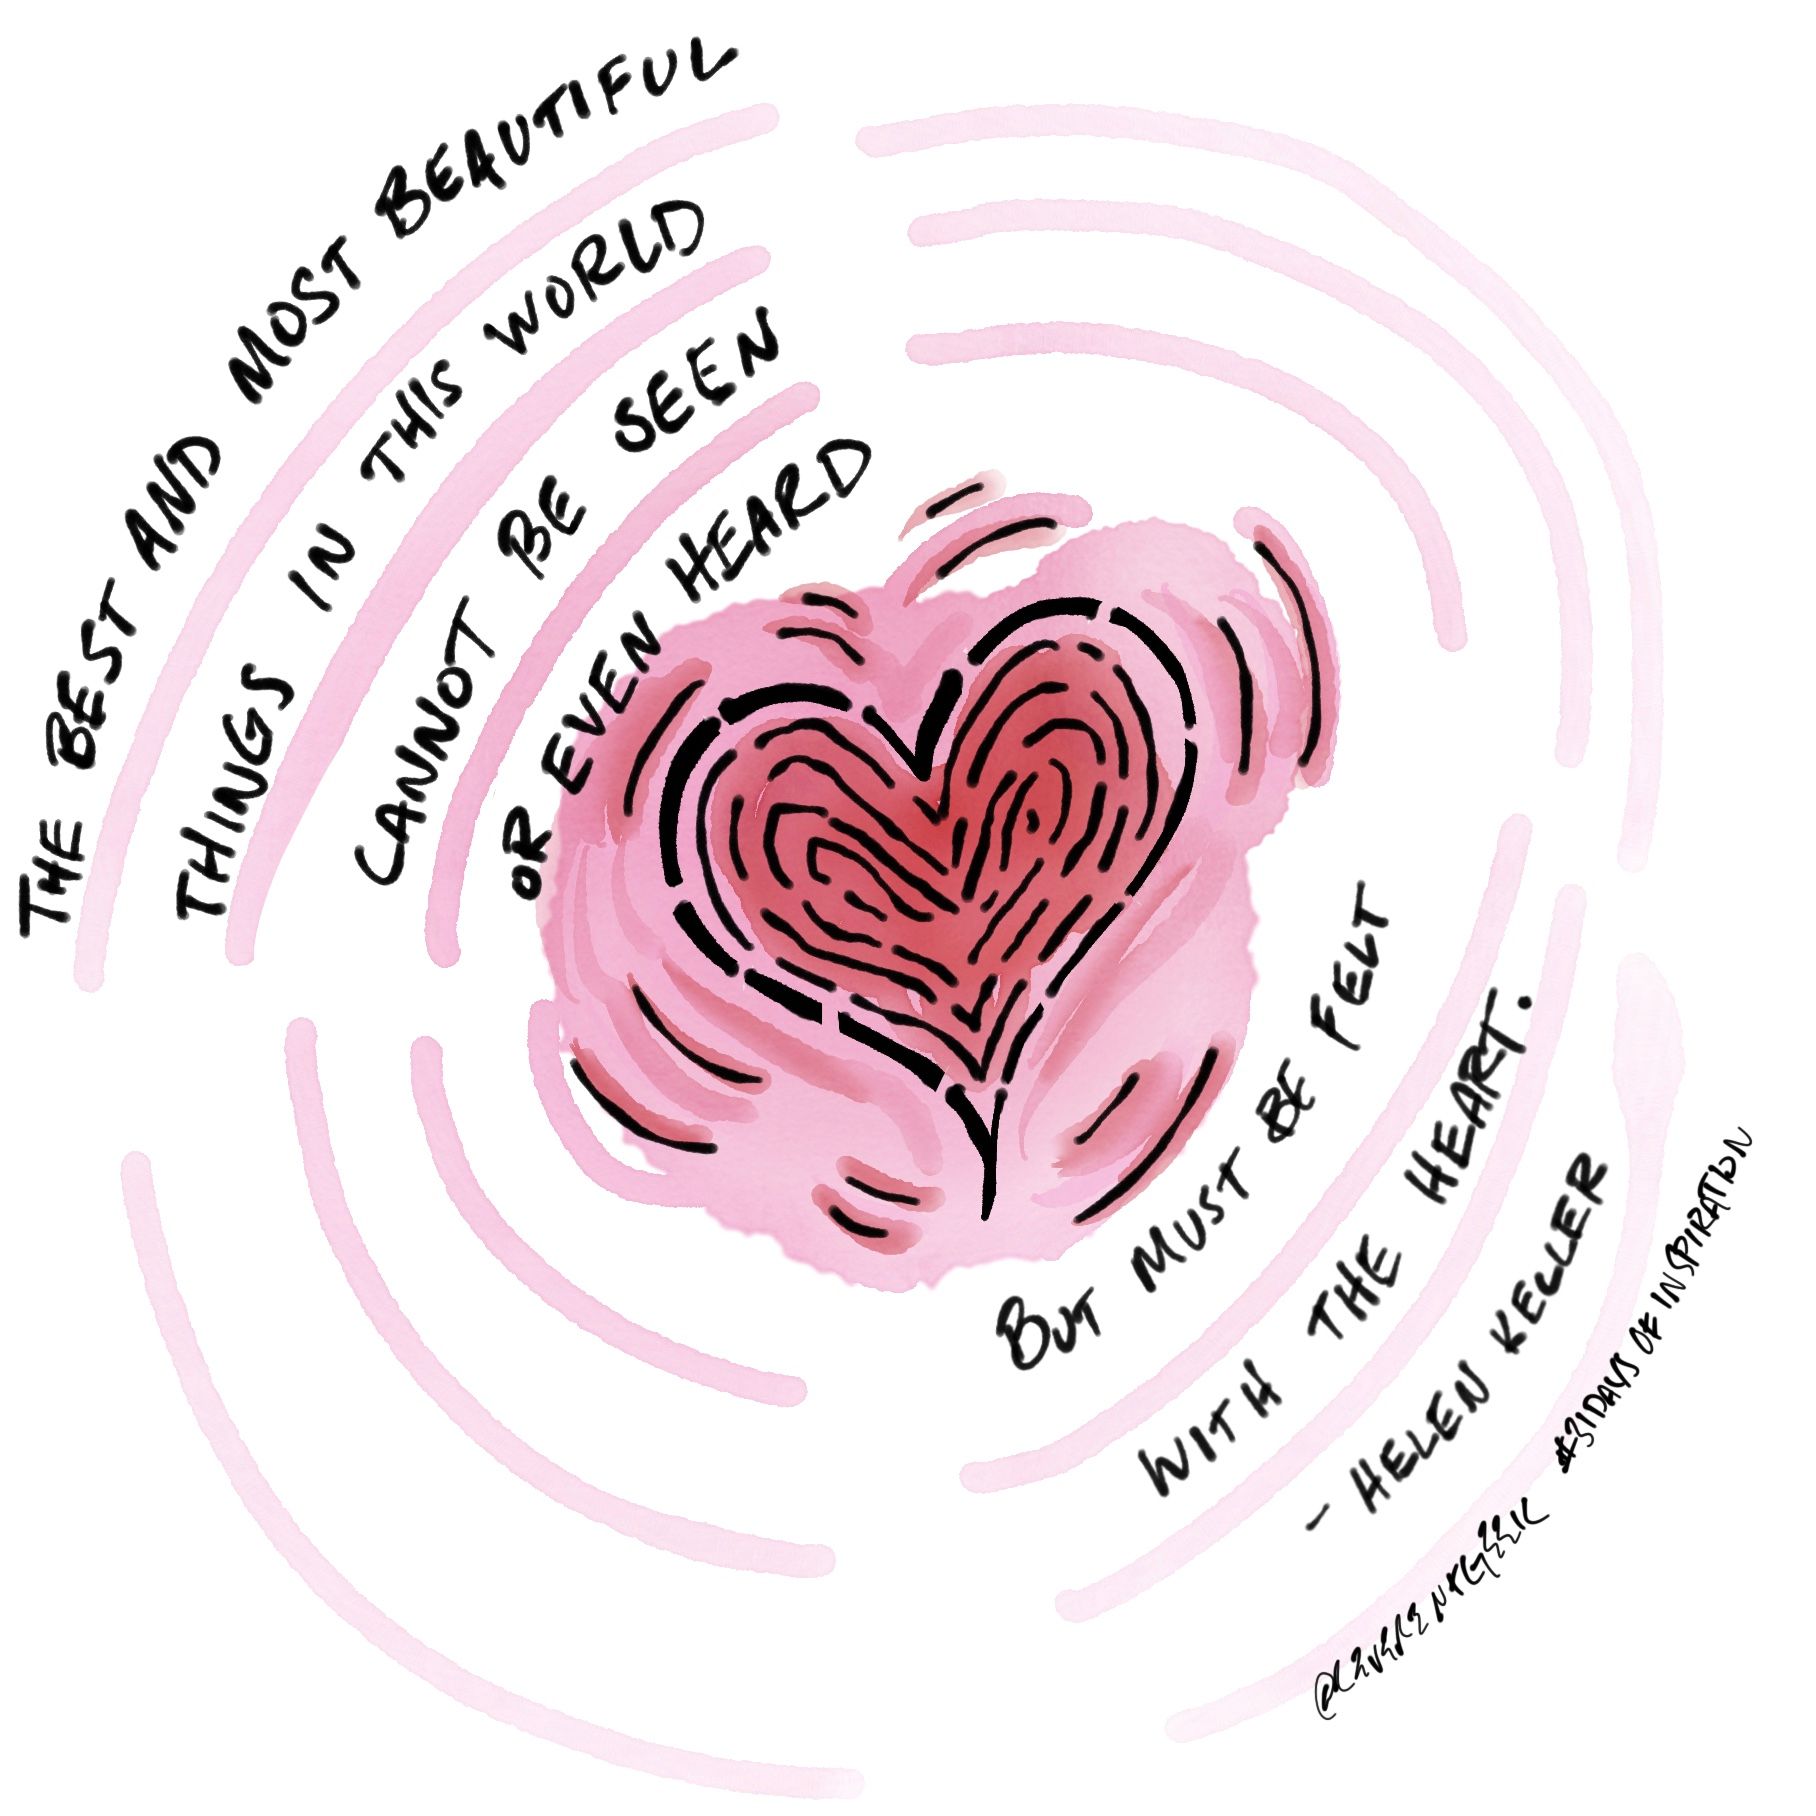 THE BEST AND MOST BEAUTIFUL
THINGS IN THIS WORLD
CANNOT BE SEEN
OR EVEN HEARD
BUT MUST BE FELT
WITH THE HEART.
- HELEN KELLER
#31DAYS OF INSPIRATION